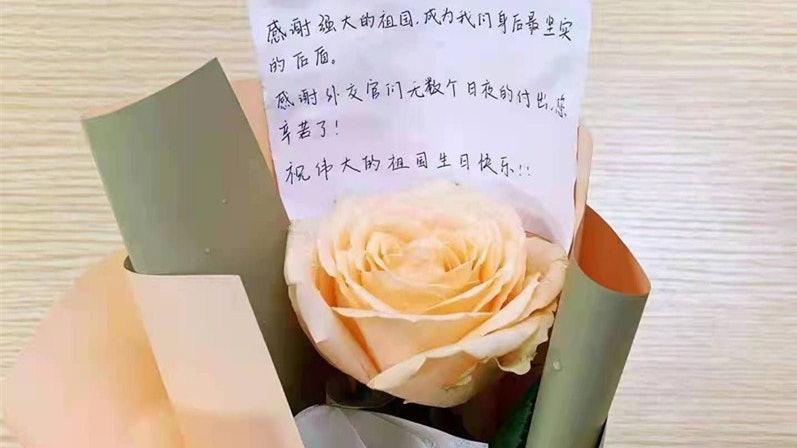 感谢强大的祖国,成为我们身后最坚实
的后盾。
感谢外交官们无数个日夜的付出,您
辛苦了!
祝伟大的祖国生日快乐!!